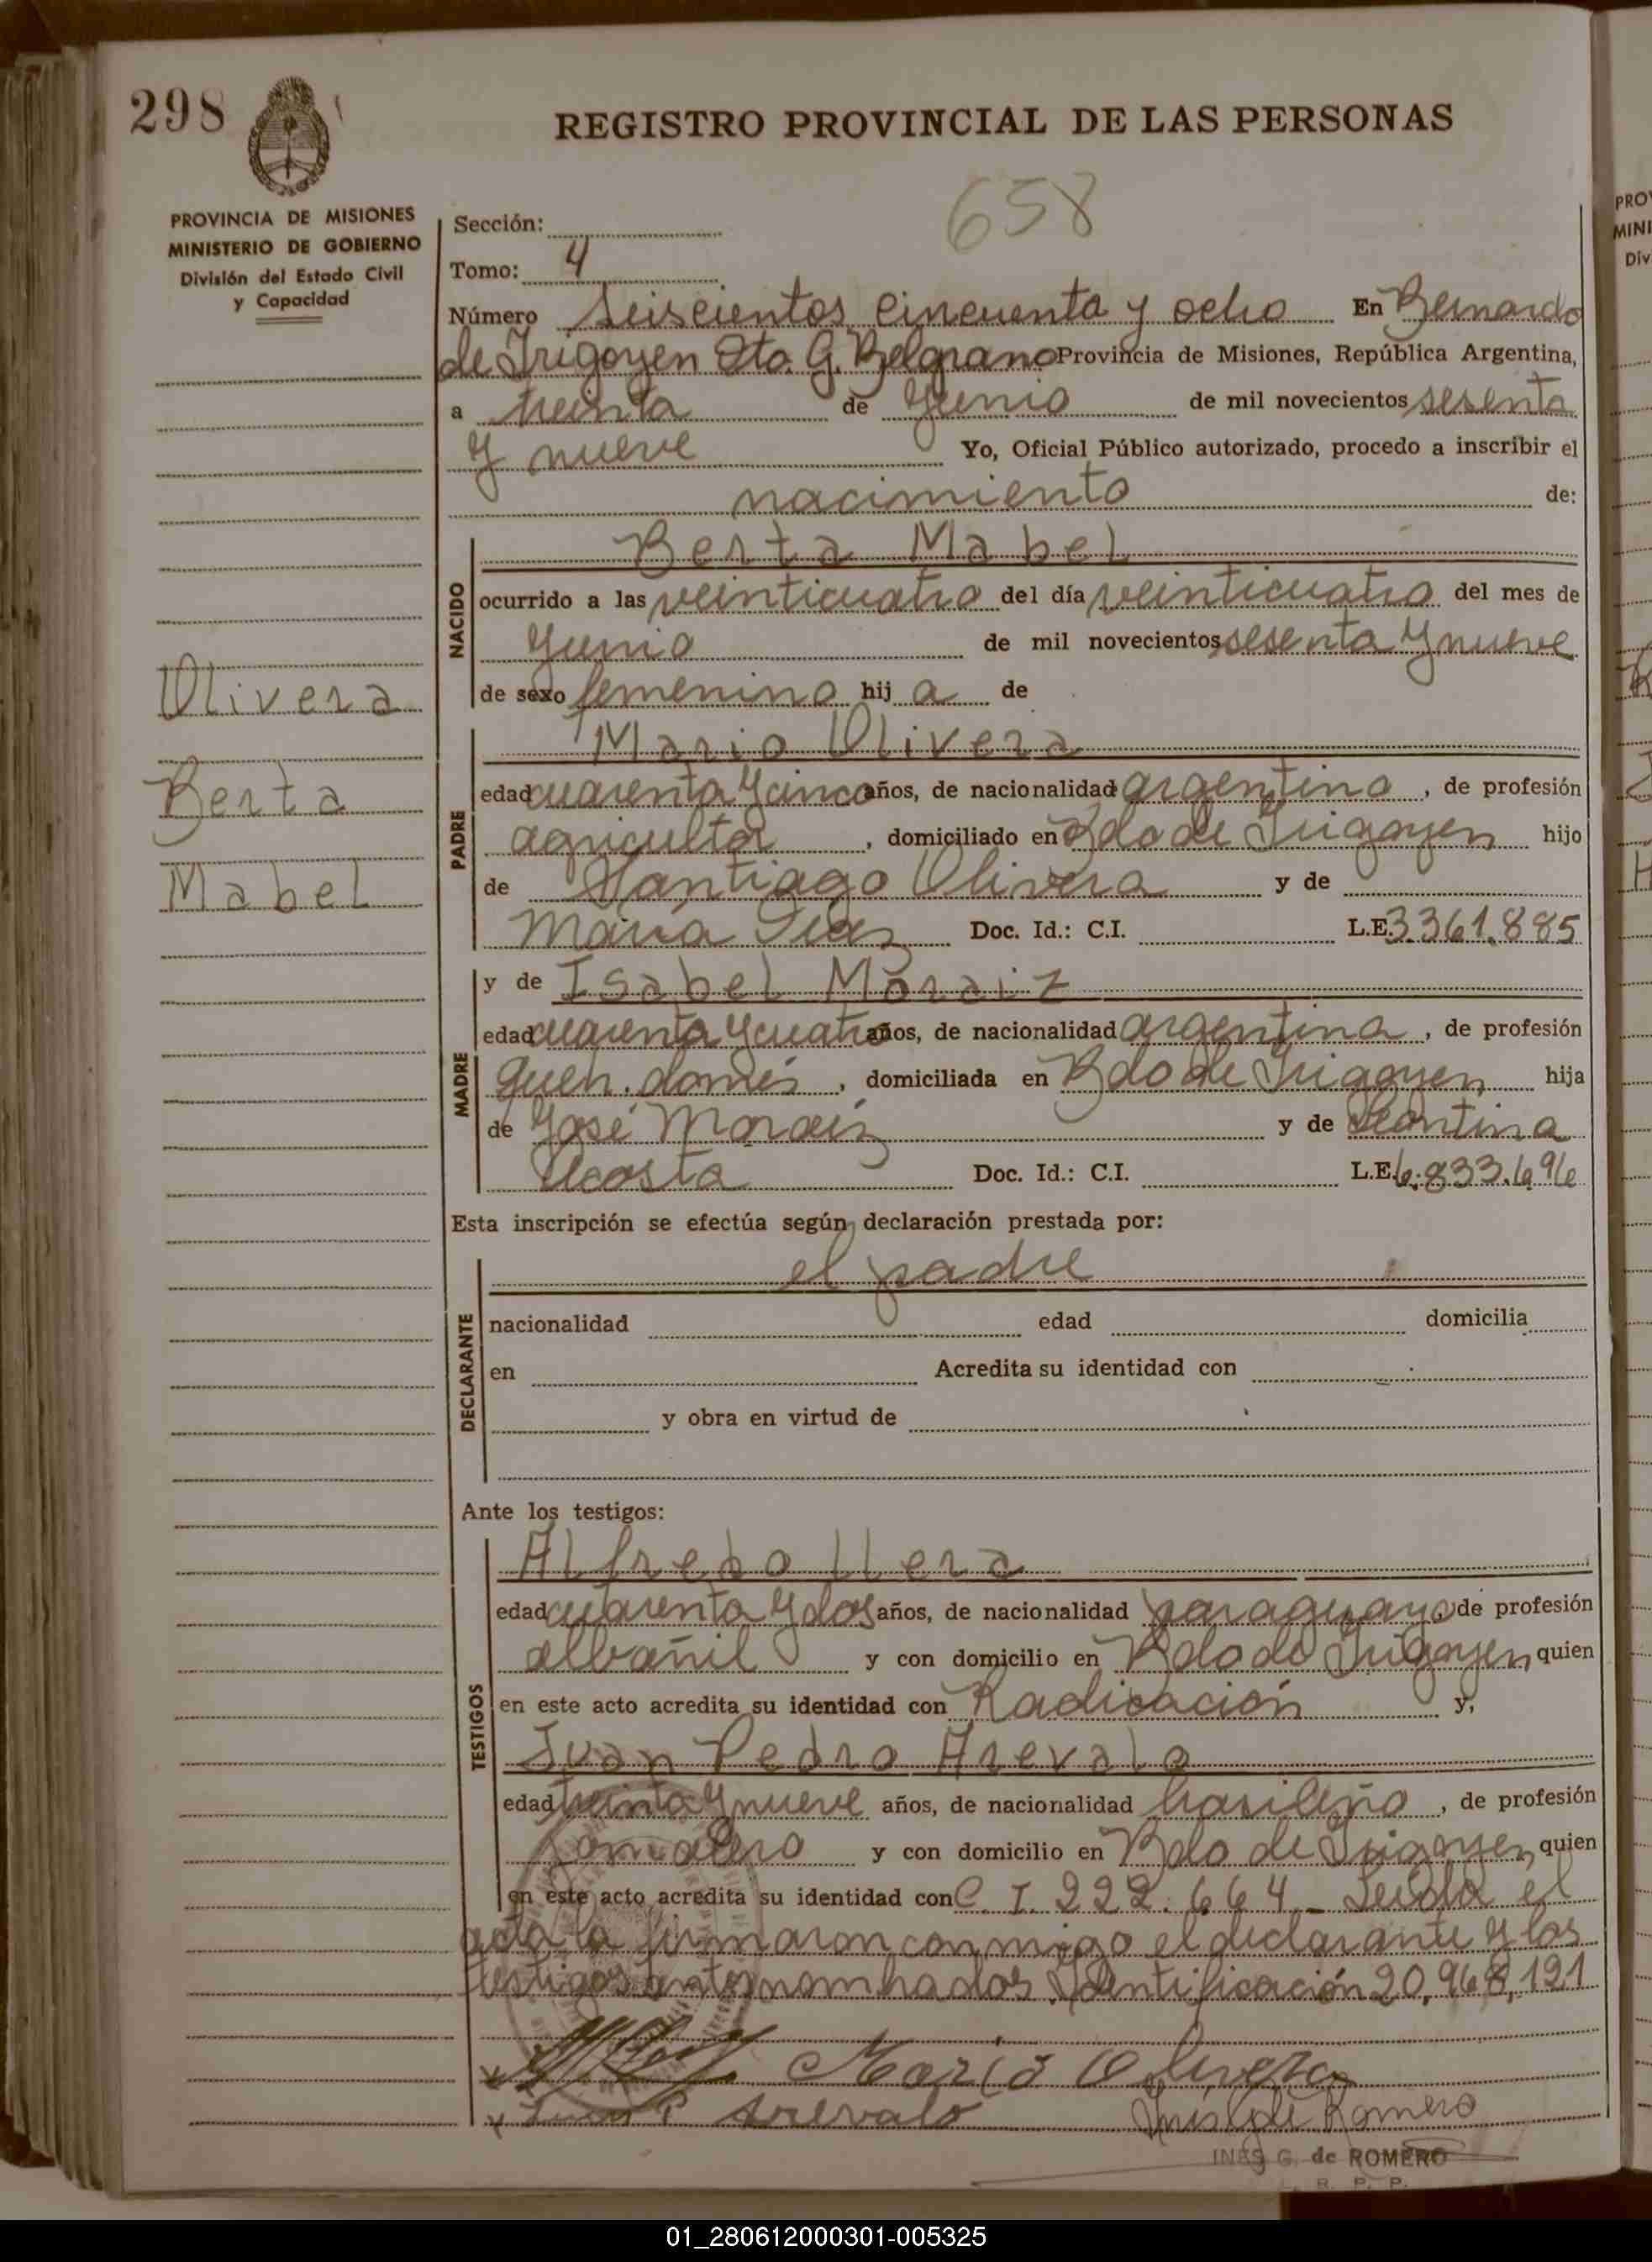 298
REGISTRO PROVINCIAL DE LAS PERSONAS
658
PROVINCIA DE MISIONES
MINISTERIO DE GOBIERNO
División del Estado Civil
y Capacidad
Olivera
Berta
Mabel
Sección:
Tomo: 4
Número Seiscientos cincuenta y ocho En Bernardo
de Irigoyen Dto. G. Belgrano Provincia de Misiones, República Argentina,
a treinta de Junio de mil novecientos sesenta
y nueve Yo, Oficial Público autorizado, procedo a inscribir el
nacimiento de:
NACIDO
Berta Mabel
ocurrido a las veinticuatro del día veinticuatro del mes de
Junio de mil novecientos sesenta y nueve
de sexo femenino hij a de
PADRE
Mario Olivera
edad cuarenta y cinco años, de nacionalidad argentino, de profesión
agricultor, domiciliado en Bdo de Irigoyen hijo
de Santiago Olivera y de
María Doc. Id.: C.I. L.E. 3.361.885
MADRE
y de Isabel Moraiz
edad cuarenta y cuatro años, de nacionalidad argentina, de profesión
queh. domés, domiciliada en Bdo de Irigoyen hija
de José Moraiz y de
Acosta Doc. Id.: C.I. L.E. 6.833.696
Esta inscripción se efectúa según declaración prestada por:
DECLARANTE
el padre
nacionalidad edad domicilia
en Acredita su identidad con
y obra en virtud de
Ante los testigos:
TESTIGOS
Alfredo Llera
edad cuarenta y dos años, de nacionalidad paraguayo, de profesión
albañil y con domicilio en Bdo de Irigoyen quien
en este acto acredita su identidad con Radicación y,
Juan Pedro Arevalo
edad treinta y nueve años, de nacionalidad brasileño, de profesión
jornalero y con domicilio en Bdo de Irigoyen quien
en este acto acredita su identidad con C. I. 222.664 - Leída el
acta la firmaron conmigo el declarante y los
testigos antes nombrados. Identificación 20,968,121
Mario Olivera
Juan P Arevalo
Ines G de Romero
INES G. de ROMERO
R. P. P.
01_280612000301-005325